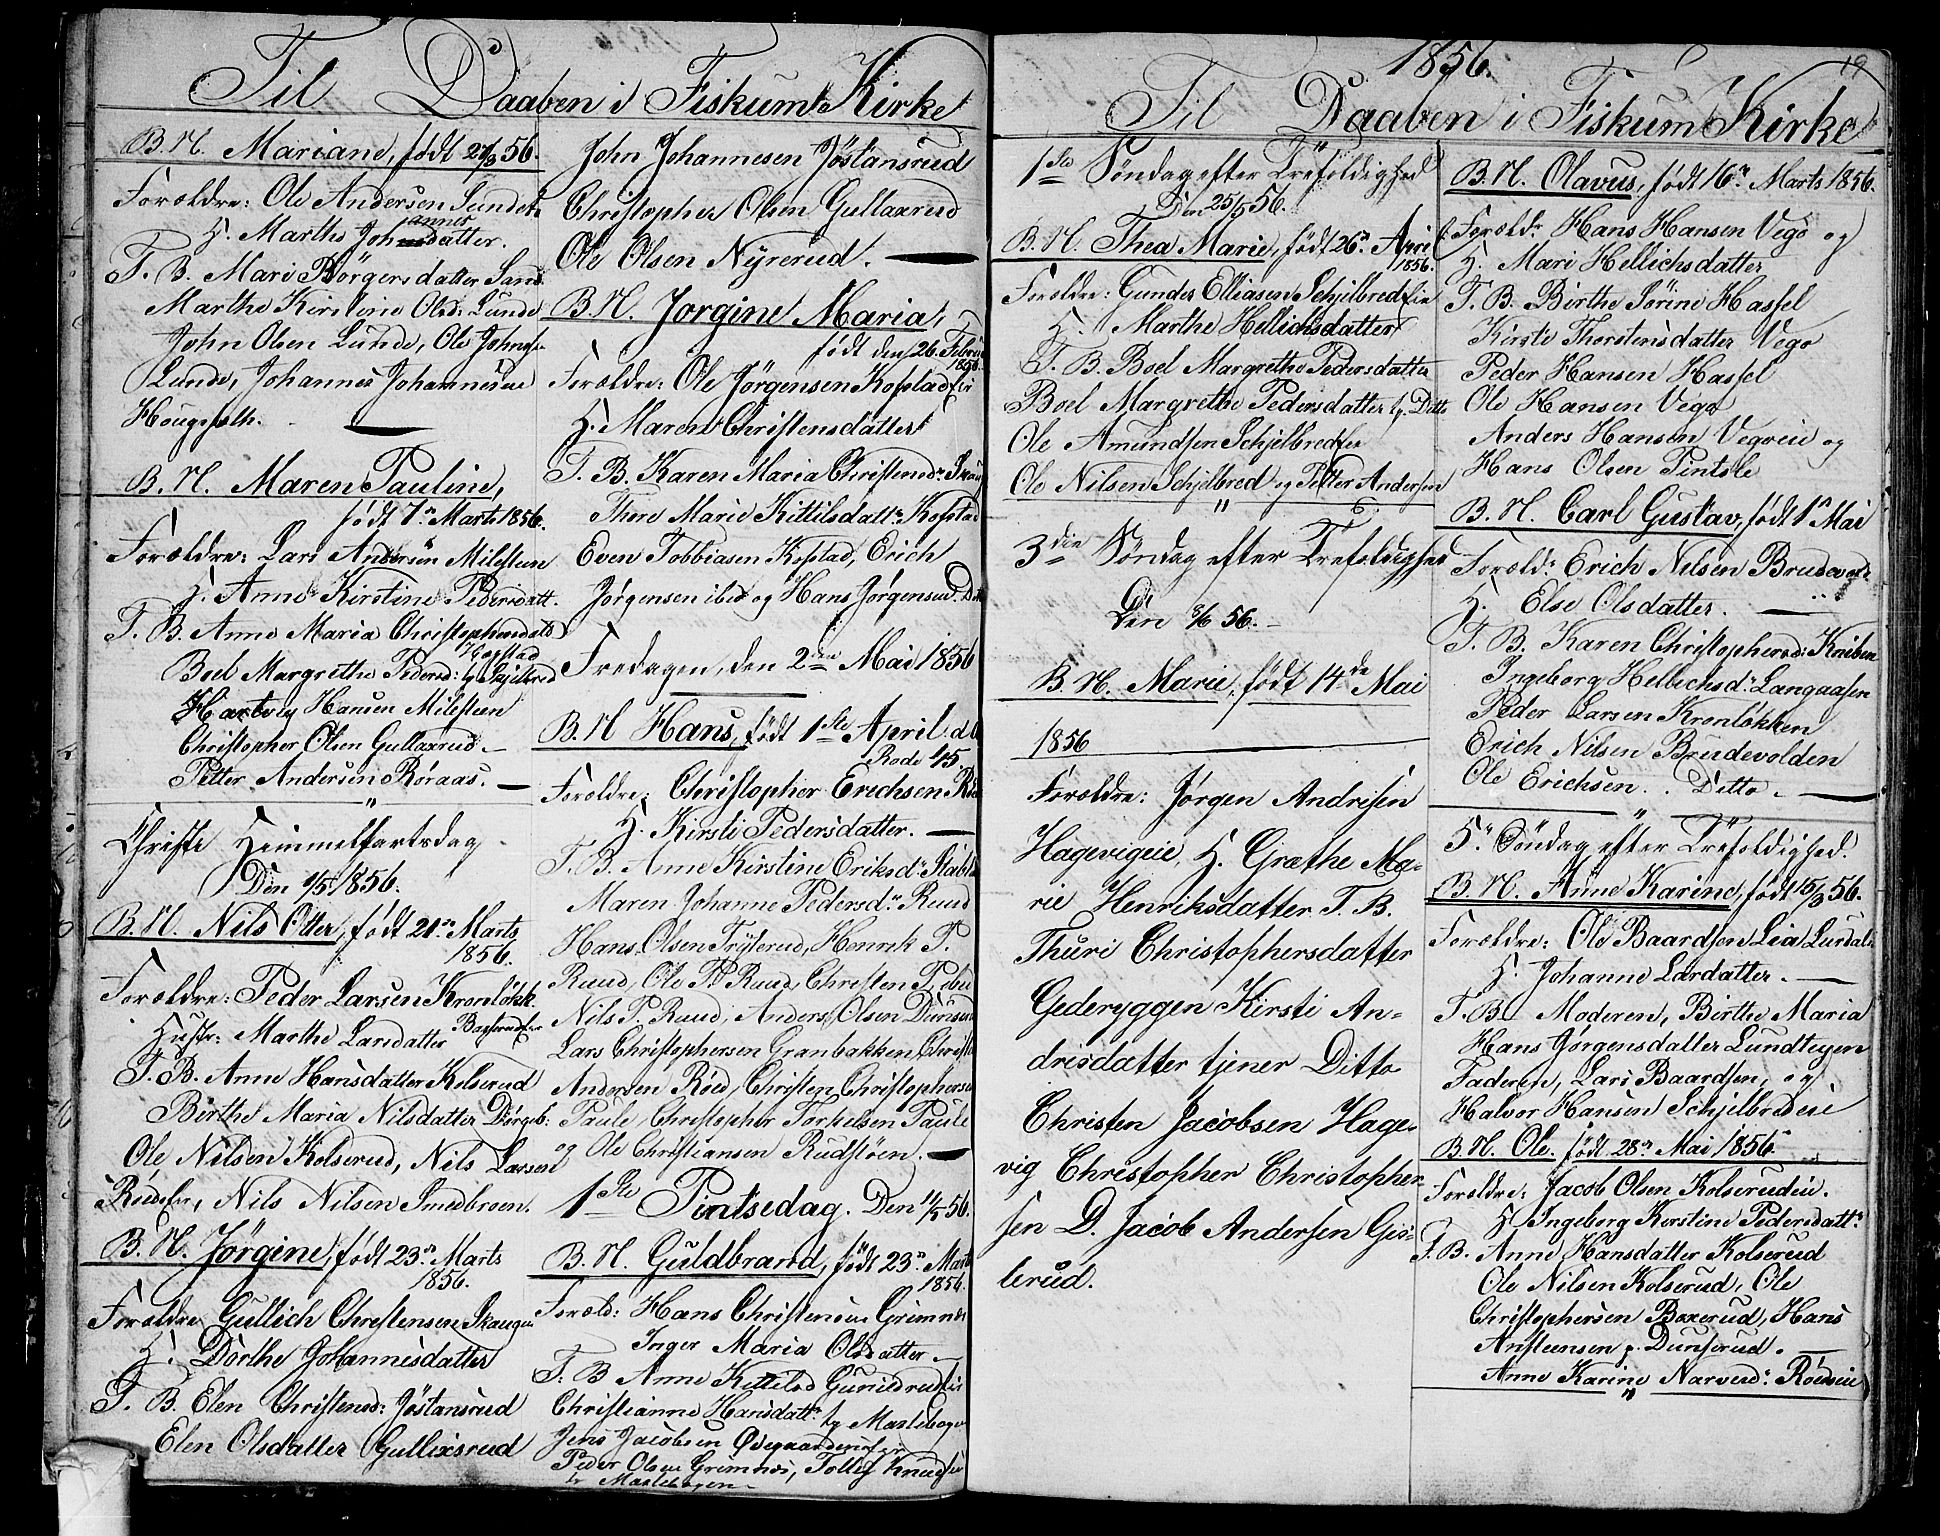 Til Daaben i Fiskum Kirke
B. N. Mariane, født 27/3 56.
Forældre: Ole Andersen Lunde
H. Marthe Johannesdatter.
T. B. Mari Børgersdatter
Marthe Kirstine Olsd: Lunde
John Olsen Lunde, Ole Johns:
Lunde, Johannes Johannesen
Hougsfolh.
B. N. Maren Pauline,
født 7de Marts 1856.
Forældre: Lars Andersen Milesteen
H. Anne Kirstine Pedersdatt.
T. B. Anne Maria Christophersdatt
Boel Margrethe Pedersd: tj Skjelbred
Hartvig Hansen Milesteen
Christopher Olsen Gullaxrud
Petter Andersen Røraas.
Christi Himmelfartsdag
Den 1/5 1856.
B. N. Nils Otter, født 21de Marts
1856.
Forældre: Peder Larsen Kronløkk.
Hustr: Marthe Larsdatter
T. B. Anne Hansdatter Kolserud
Birthe Maria Nilsdatter
Ole Nilsen Kolserud, Nils Larsen
Nils Nilsen Smedbroen.
B. N. Jørgine, født 23de Marts
1856.
Forældre Gullich Christensen Skaugen
H. Dorthe Johannesdatter
T. B. Elen Christensd: Jøstansrud
Elen Olsdatter Gullixsrud
John Johannesen Jøstansrud
Christopher Olsen Gullaxrud
Ole Olsen Nyrerud.
B. N. Jørgine Maria,
født den 26. Febru
1856.
Forældre: Ole Jørgensen Kopstad
H. Maren Christensdatter
T. B. Karen Maria Christensd:
Thore Marie Kittilsdattr Kopstad
Even Tobbiasen Kopstad, Erich
Jørgensen ibid og Hans Jørgensen
Fredagen, den 2den Mai 1856
B. N. Hans, født 1ste April
Forældre: Christopher Erichsen
H. Kirsti Pedersdatter.
T. B. Anne Kirstine Eriksd:
Maren Johanne Pedersdr Ruud
Hans Olsen Frylerud, Henrik P.
Ruud, Ole P. Ruud, Christen P.
Nils P. Ruud, Anders Olsen
Lars Christophersen Granbakken
Andersen Røed, Christen Christophersen
Paule, Christopher Torkelsen Paule
og Ole Christiansen Rudstøen.
1ste Pintsedag. Den 11/5 56.
B. N. Guldbrand, født 23de Marts
1856.
Foræld: Hans Christensen Grimnes
Inger Maria Olsdatter
T. B. Anne Kittelsd
Christianne Hansdattr tj Mastebogen
Jens Jacobsen
Peder Olsen Grimnes, Tollef Knudsen
Mastebogen
1856.
19
Til Daaben i Fiskum Kirke
1ste Søndag efter Trefoldighed
Den 25/5 56.
B. N. Thea Marie, født 26de April
1856.
Forældre: Gunder Elliasen Schjelbred
H. Marthe Hellichsdatter
T. B. Boel Margrethe Pedersdatter
Boel Margrethe Pedersdatter tj. Ditto
Ole Amundsen Schjelbred
Ole Nilsen Schjelbred og Petter Andersen
3die Søndag efter Trefoldighed
Den 8/6 56.
B. N. Marie, født 14de Mai
1856
Forældre: Jørgen Andrisen
Hagevigeie, H. Græthe Ma-
rie Henriksdatter T. B.
Thuri Christophersdatter
Gederyggen Kirsti An-
drisdatter tjener Ditto
Christen Jacobsen Hage-
vig Christopher Christopher
sen D. Jacob Andersen Gis-
lerud.
B. N. Olavus, født 16de Marts 1856.
Foræld: Hans Hansen Vego og
H. Mari Hellichsdatter
T. B. Birthe Sørine Hassel
Kirsti Thorstensdatter Vego
Peder Hansen Hassel
Ole Hansen Vego
Anders Hansen Vegoeie og
Hans Olsen
B. N. Carl Gustav, født 1de Mai
Foræld: Erich Nilsen Brudevold
H. Else Olsdatter.
T. B. Karen Christophersd:
Ingeborg Hellichsdr Langaasen
Peder Larsen Kronløkken
Erich Nilsen Brudevolden
Ole Erichsen. Ditto
5te Søndag efter Trefoldighed.
B. N. Anne Karine, født 15/3 56.
Forældre: Ole Baardsen
H. Johanne Larsdatter.
T. B. Moderen, Birthe Maria
Hans Jørgensdatter Lundtegen
Faderen, Lars Baardsen, og
Halvor Hansen Schjelbredeie
B. N. Ole. født 28de Mai 1856.
Forældre: Jacob Olsen Kolserudeie.
H. Ingeborg Kirstine Pedersdattr
T. B. Anne Hansdatter Kolserud
Ole Nilsen Kolserud, Ole
Christophersen Baxerud, Hans
Ansteensen p. Dunserud.
Anne Karine Narvesdr Røedeie